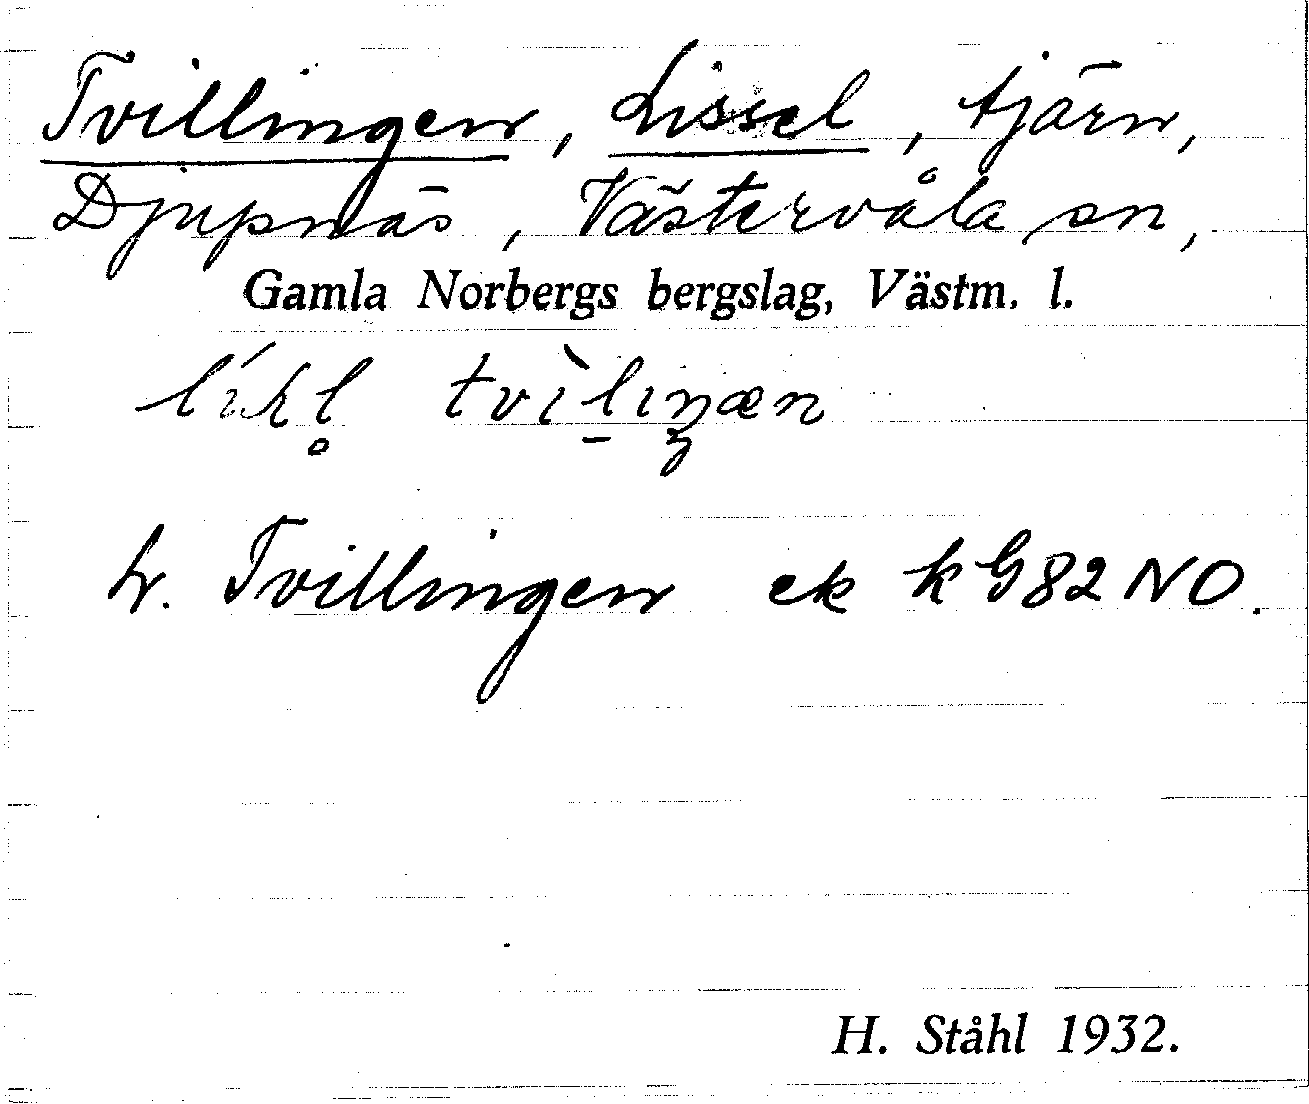 Tvillingen, Lissel, tjärn,
Djupnäs, Västervåla sn,
Gamla Norbergs bergslag, Västm. l.
tvìliŋæn
L. Tvillingen ek kG82NO.
H. Ståhl 1932.